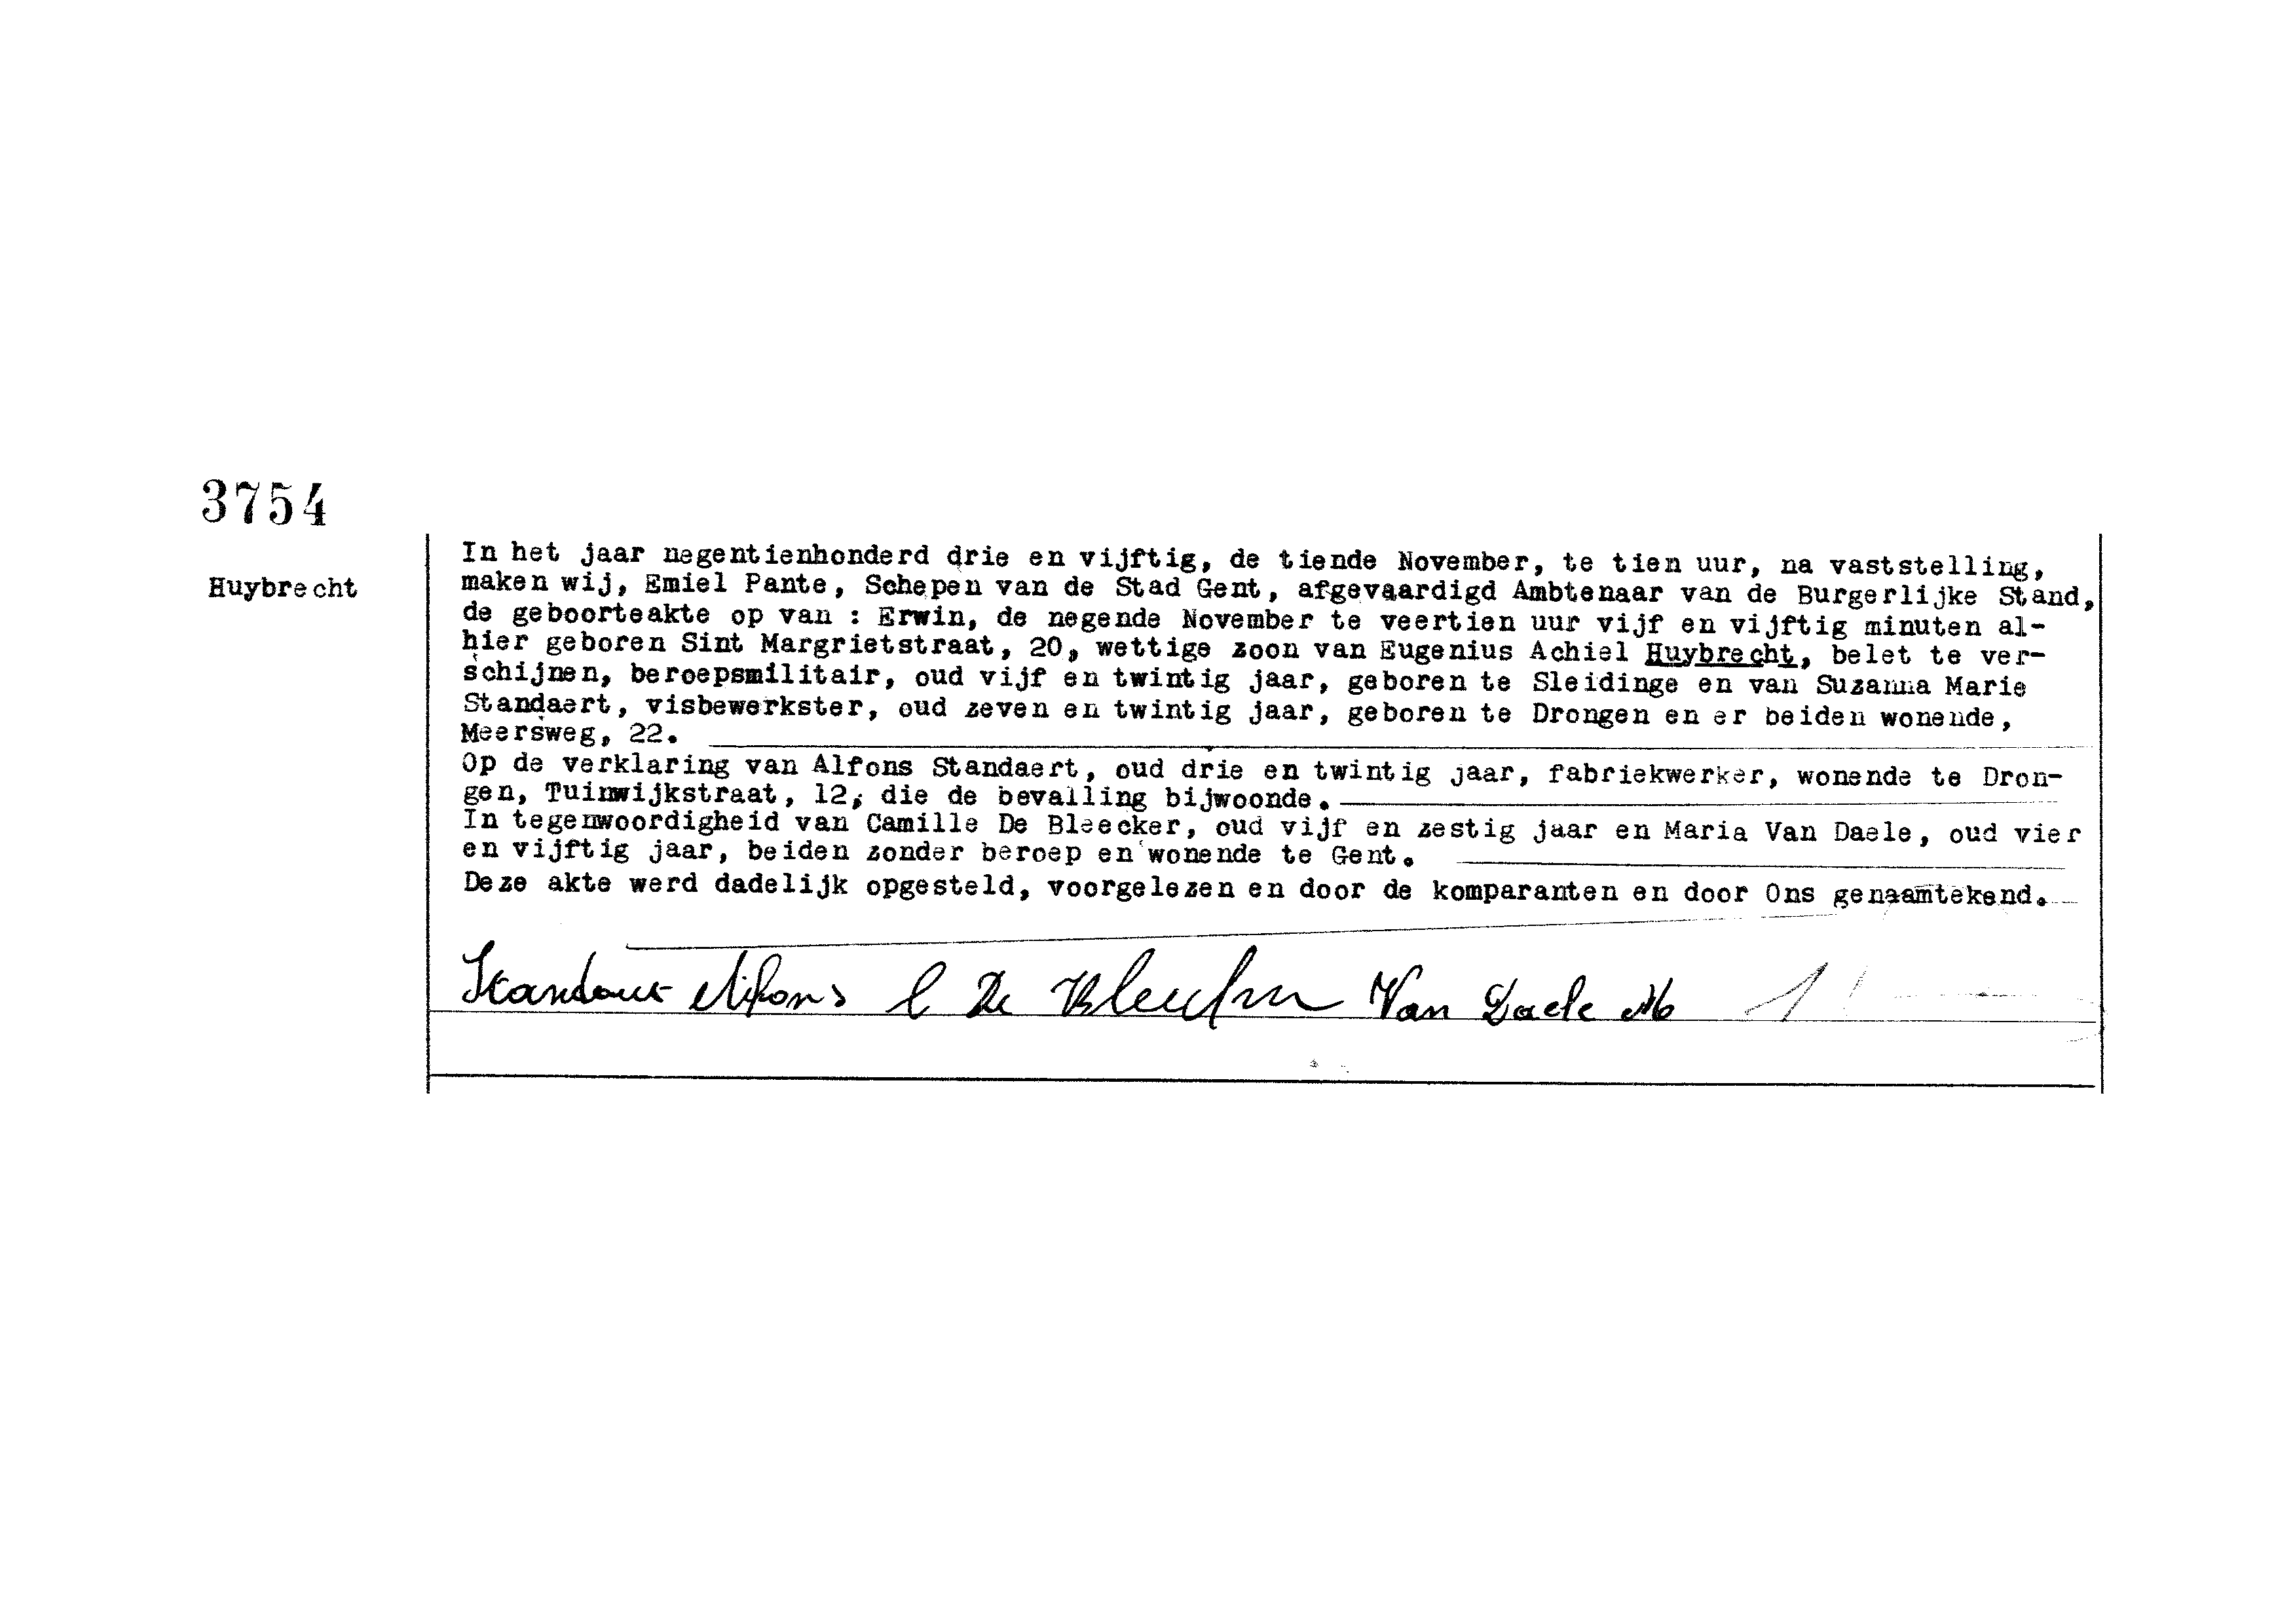 3754
Huybrecht
In het jaar negentienhonderd drie en vijftig, de tiende November, te tien uur, na vaststelling,
maken wij, Emiel Pante, Schepen van de Stad Gent, afgevaardigd Ambtenaar van de Burgerlijke Stand,
de geboorteakte op van : Erwin, de negende November te veertien uur vijf en vijftig minuten al-
hier geboren Sint Margrietstraat, 20, wettige zoon van Eugenius Achiel Huybrecht, belet te ver-
schijnen, beroepsmilitair, oud vijf en twintig jaar, geboren te Sleidinge en van Suzanna Marie
Standaert, visbewerkster, oud zeven en twintig jaar, geboren te Drongen en er beiden wonende,
Meersweg, 22.
Op de verklaring van Alfons Standaert, oud drie en twintig jaar, fabriekwerker, wonende te Dron-
gen, Tuinwijkstraat, 12, die de bevalling bijwoonde.
In tegenwoordigheid van Camille De Bleecker, oud vijf en zestig jaar en Maria Van Daele, oud vier
en vijftig jaar, beiden zonder beroep en wonende te Gent.
Deze akte werd dadelijk opgesteld, voorgelezen en door de komparanten en door Ons genaamtekend.
Alfons De Van Daele